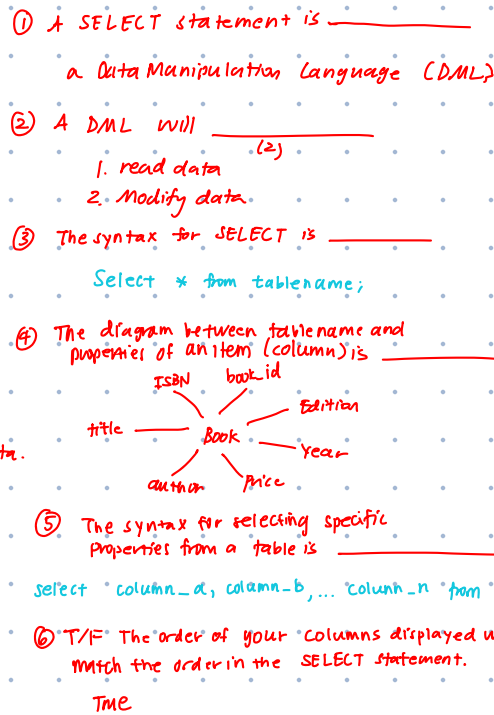 ① A SELECT statement is ________
a Data Manipulation Language (DML)
② A DML will ________
(2)
1. read data
2. Modify data.
③ The syntax for SELECT is ________
Select * from tablename;
④ The diagram between tablename and
properties of an item (column) is ________
ISBN book_id
Edition
title Book
Year
ta.
author Price
⑤ The syntax for selecting specific
properties from a table is ________
select column_a, column_b, ... column_n from
⑥ T/F The order of your columns displayed w
match the order in the SELECT statement.
True